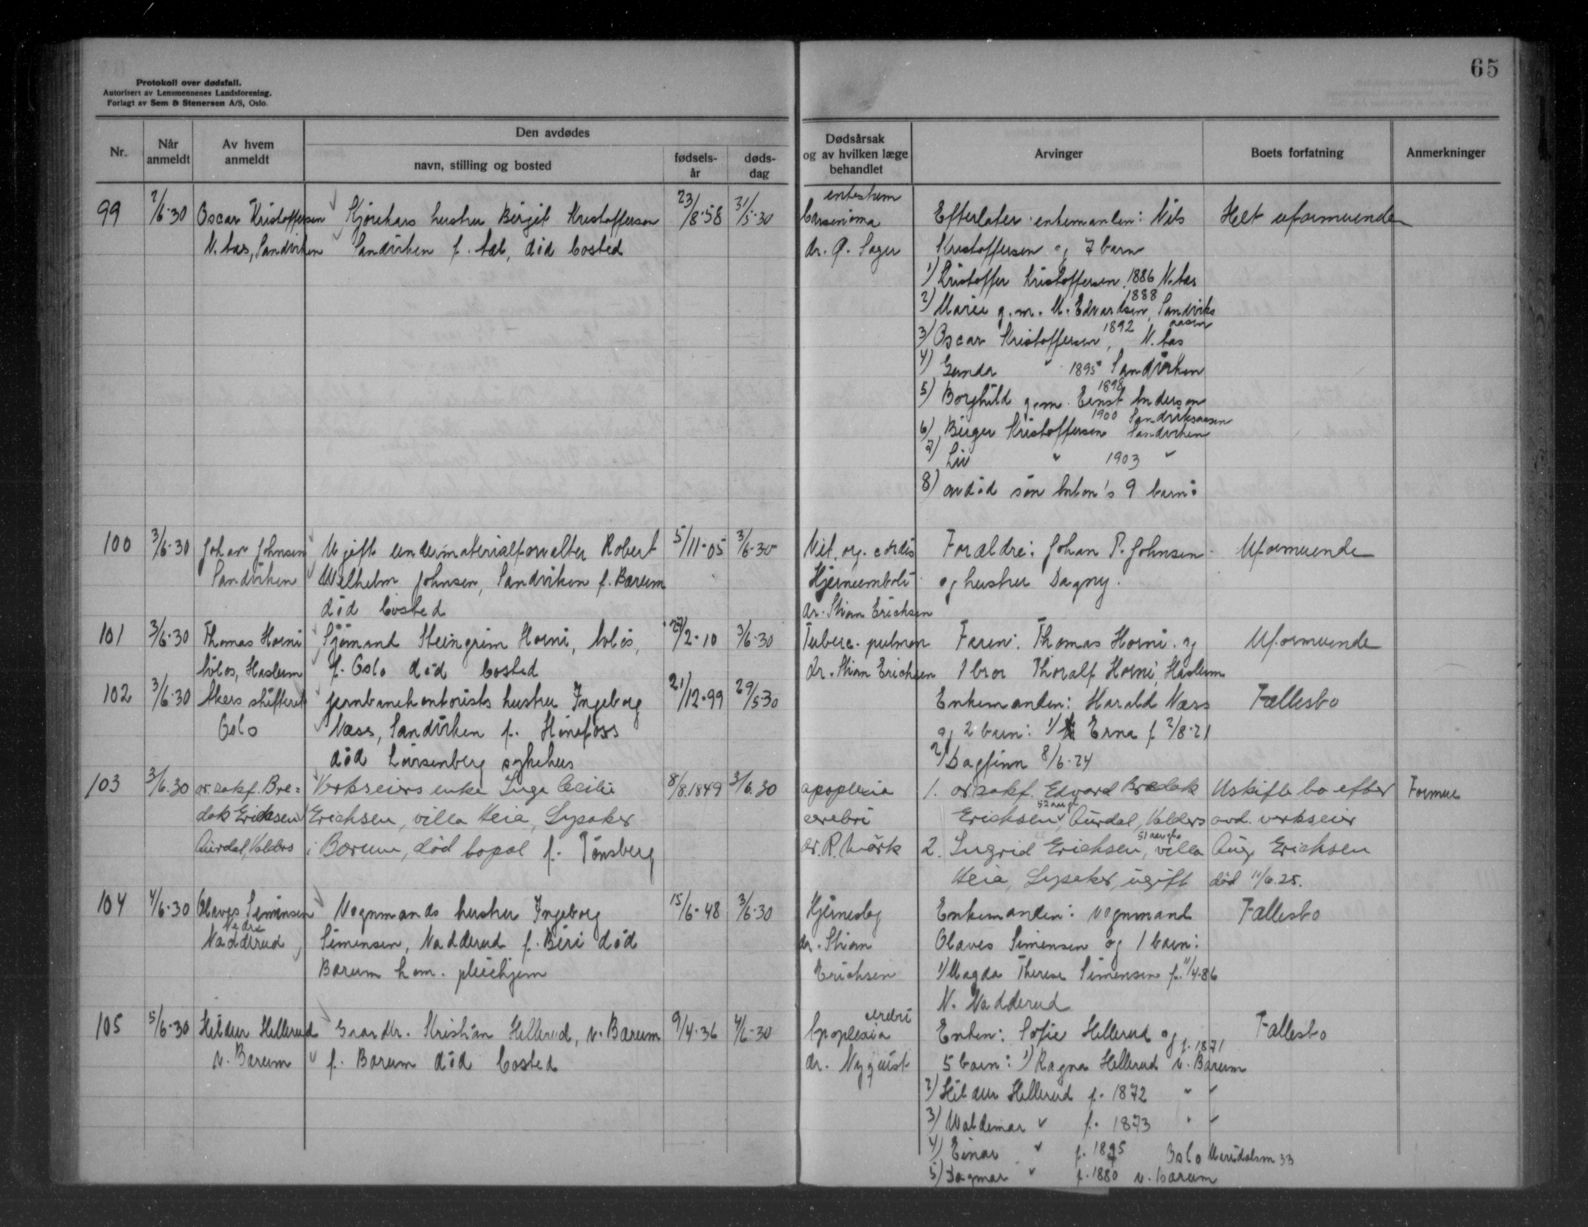 65
Protokoll over dødsfall.
Autorisert av Lensmennenes Landsforening.
Forlagt av Sem & Stenersen A/S, Oslo.
Nr.
Når anmeldt
Av hvem anmeldt
Den avdødes
navn, stilling og bosted
fødselsår
dødsdag
Dødsårsak og av hvilken læge behandlet
Arvinger
Boets forfatning
Anmerkninger
99 2/6-30 Oscar Kristoffersen Kjørekars hustru Birgit Kristoffersen 23/8-58 31/5-30
N. Aas, Sandviken Sandviken f. Aal, död bosted
Carsinoma
Efterlater enkemanden: Nils Helt uformuende
Kristoffersen og 7 barn
1) Kristoffer Kristoffersen 1886 N. Aas
2) Marie g.m. M. Edvardsen, 1888 Sandviks
aasen
3) Oscar Kristoffersen, 1892 N. Aas
4) Gunda " 1895 Sandviken
5) Borghild g.m. 1898 Ernst Anderson
Sandviksaasen
6) Birger Kristoffersen 1900 Sandviken
7) Liv " 1903 "
8) avdöd sön Anton's 9 barn:
100 3/6-30 Johan Johnsen Ugift undermaterialforvalter Robert 5/11-05 3/6-30
Sandviken Wilhelm Johnsen, Sandviken f. Bærum
död bosted
Vit. org. cordis
Hjerneemboli
dr. Stian Erichsen
Forældre: Johan P. Johnsen Uformuende
og hustru Dagny.
101 3/6-30 Thomas Horni Sjömand Steingrim Horni, 2-10 3/6-30
Haslum f. Oslo död bosted
Tuberc. pulmon
dr. Stian Erichsen
Faren: Thomas Horni og Uformuende
1 bror Thoralf Horni, Haslum
102 3/6-30 Akers skifterett Jernbanekontorists hustru Ingeborg 21/12-99 29/5-30
Oslo Næss, Sandviken f. Hönefoss
död Lovisenberg sykehus
Enkemanden: Harald Næss Fællesbo
og 2 barn: 1/ Erna f 2/8-21
2/ Dagfinn 8/6-24
103 3/6.30 or.sakf. Bre= Verkseiers enke Inga Cecilie 8/8.1849 3/6.30
dak Erichsen Erichsen, villa Heia, Lysaker
Aurdal, Valdres i Bærum, död bopæl f. Tönsberg
apoplexia
cerebri
dr. R. Mörk
1. or.sakf. Edvard Bredak Uskifte bo efter Formue
Erichsen, 52 aar gl Aurdal, Valdres avd. verkseier
2. Ingrid Erichsen, 51 aar gl villa Aug. Erichsen
Heia, Lysaker, ugift död 11/6.25.
104 4/6-30 Olaves Simensen Vognmands hustru Ingeborg 15/6-48 3/6-30
Nedre
Nadderud, Simensen, Nadderud f. Biri död
Bærum kom. pleiehjem
Hjerneslag
dr. Stian
Erichsen
Enkemanden: vognmand Fællesbo
Olaves Simensen og 1 barn:
1) Magda Therese Simensen f. 11/4-86
N. Nadderud
105 5/6-30 Hildur Hellerud Gaardbr. Kristian Hellerud, v. Bærum 9/4-36 4/6-30
v. Bærum f. Bærum död bosted
Apoplexia cerebri
dr. Nyquist
Enken: Sofie Hellerud og Fællesbo
5 barn: 1) Ragna Hellerud f. 1871 v. Bærum
2) Hildur Hellerud f. 1872 " "
3) Waldemar " f. 1873 " "
4) Einar " f. 1875 Oslo
5) Dagmar " f. 1880 v. Bærum